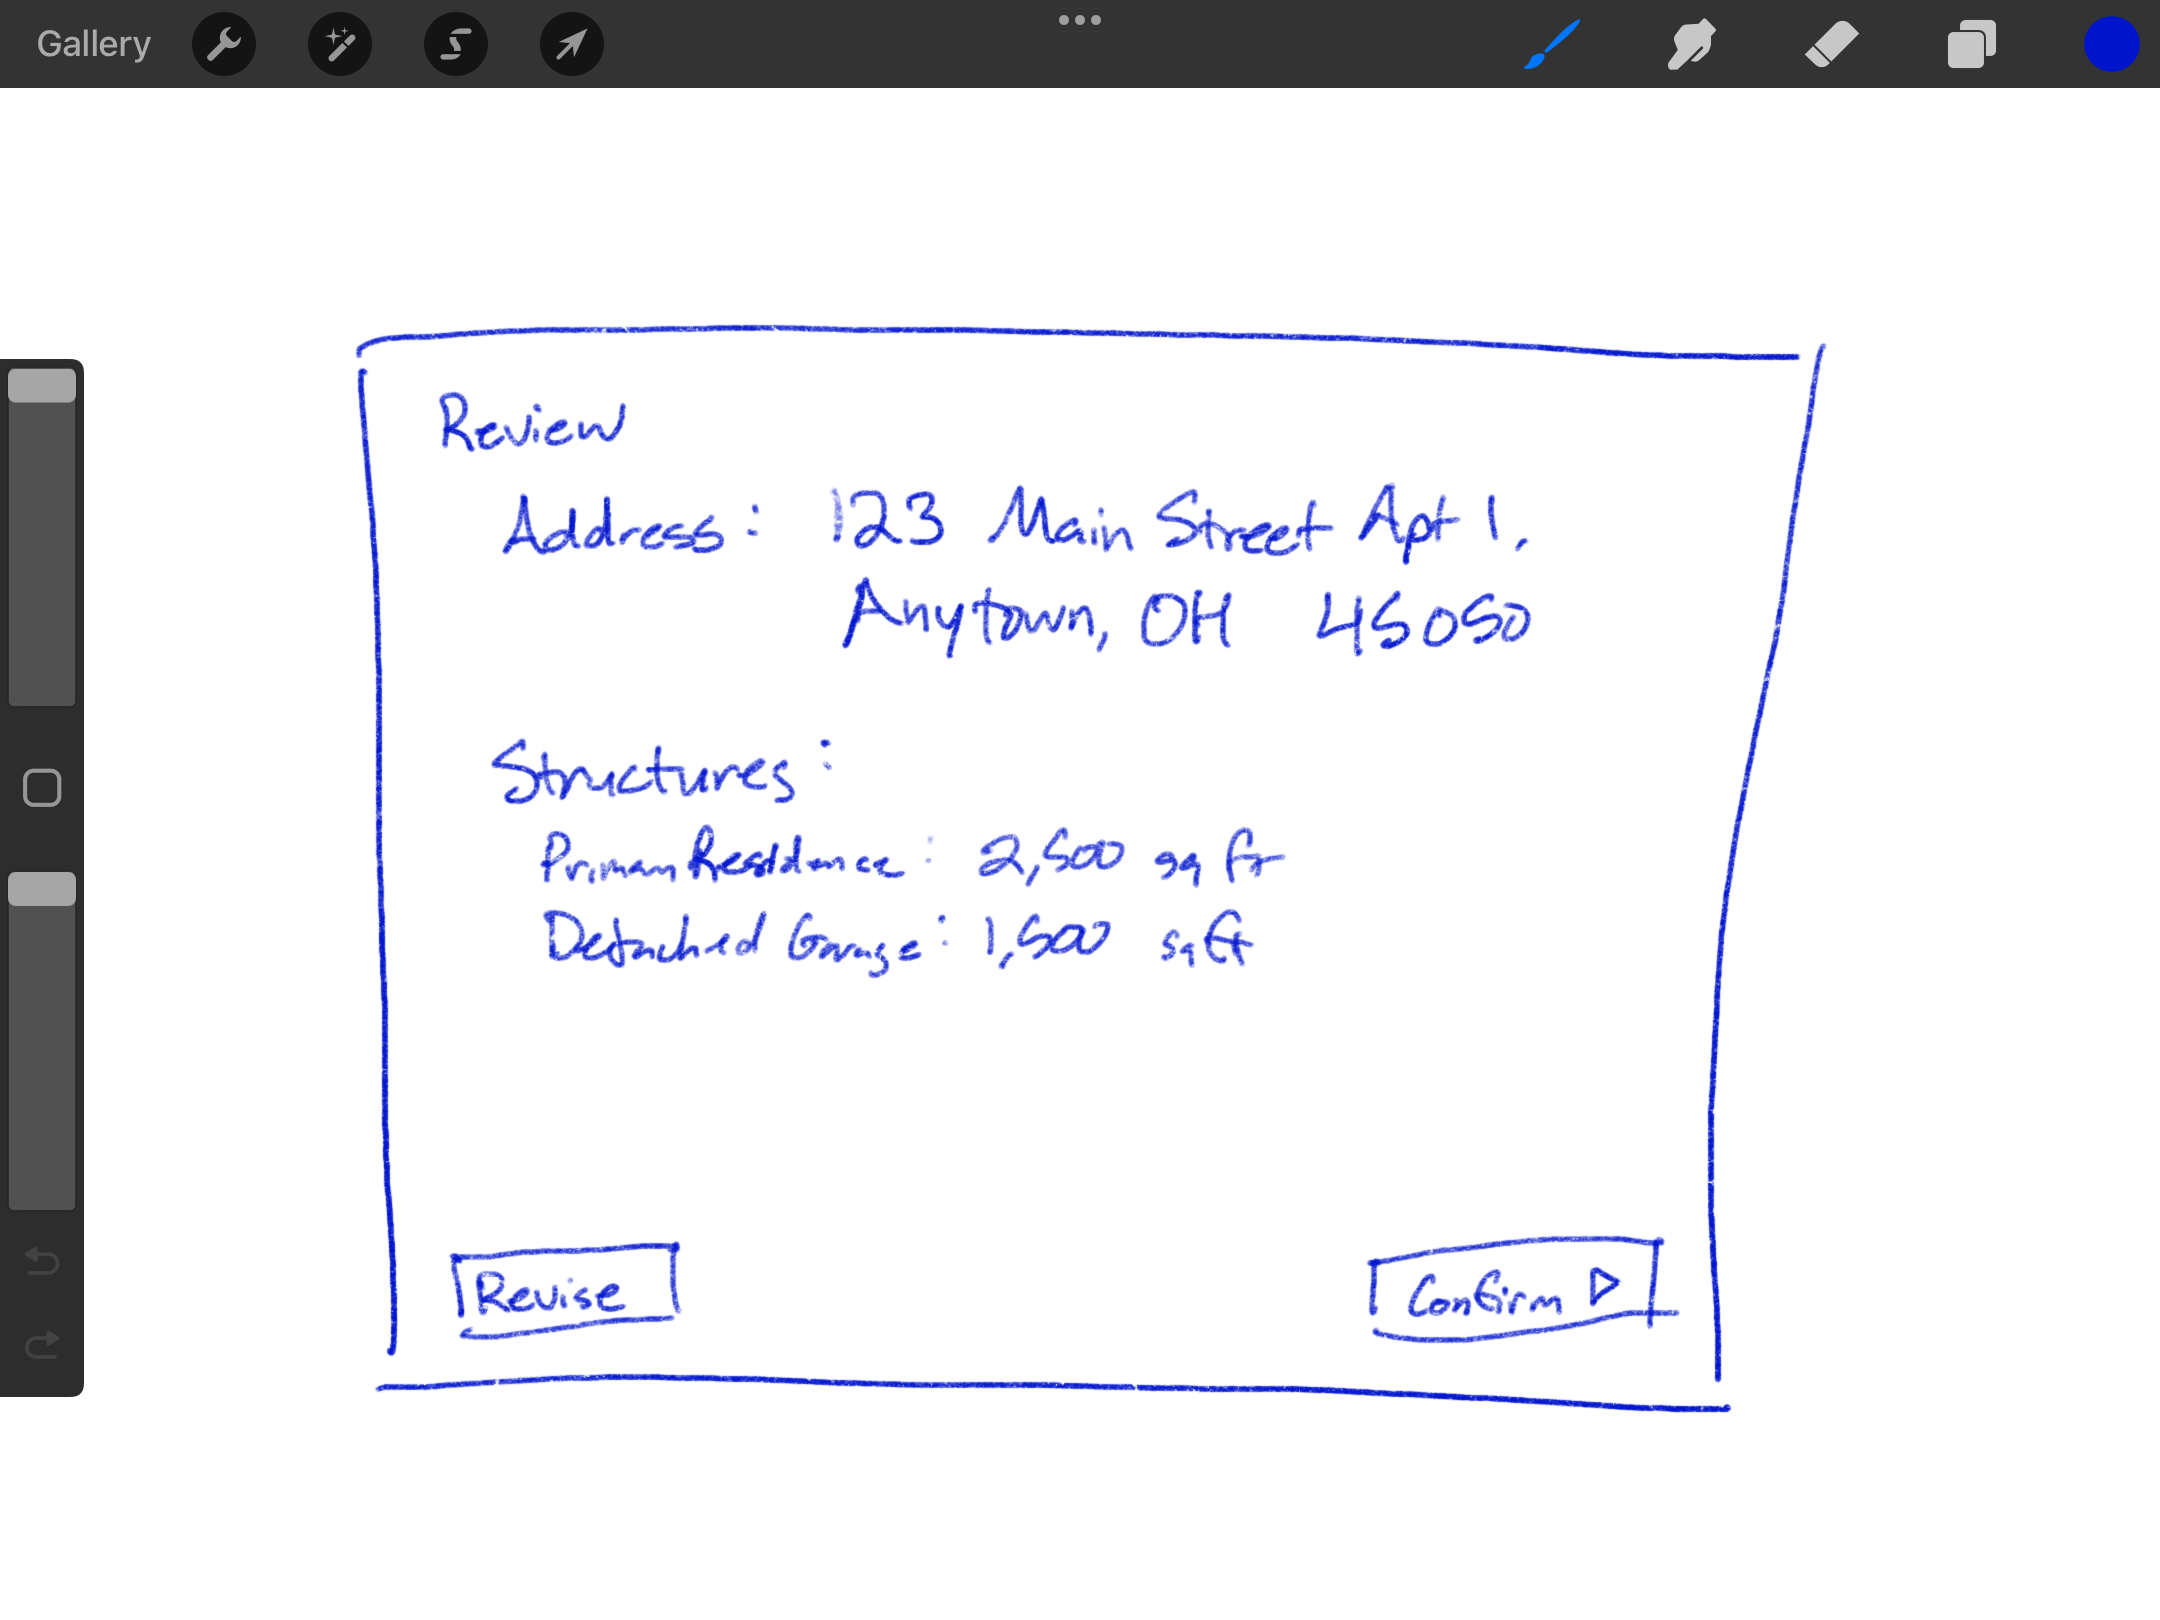 Gallery
Review
Address: 123 Main Street Apt 1,
Anytown, OH 45050
Structures:
Primary Residence: 2,500 sq ft
Detached Garage: 1,500 sq ft
Revise
Confirm